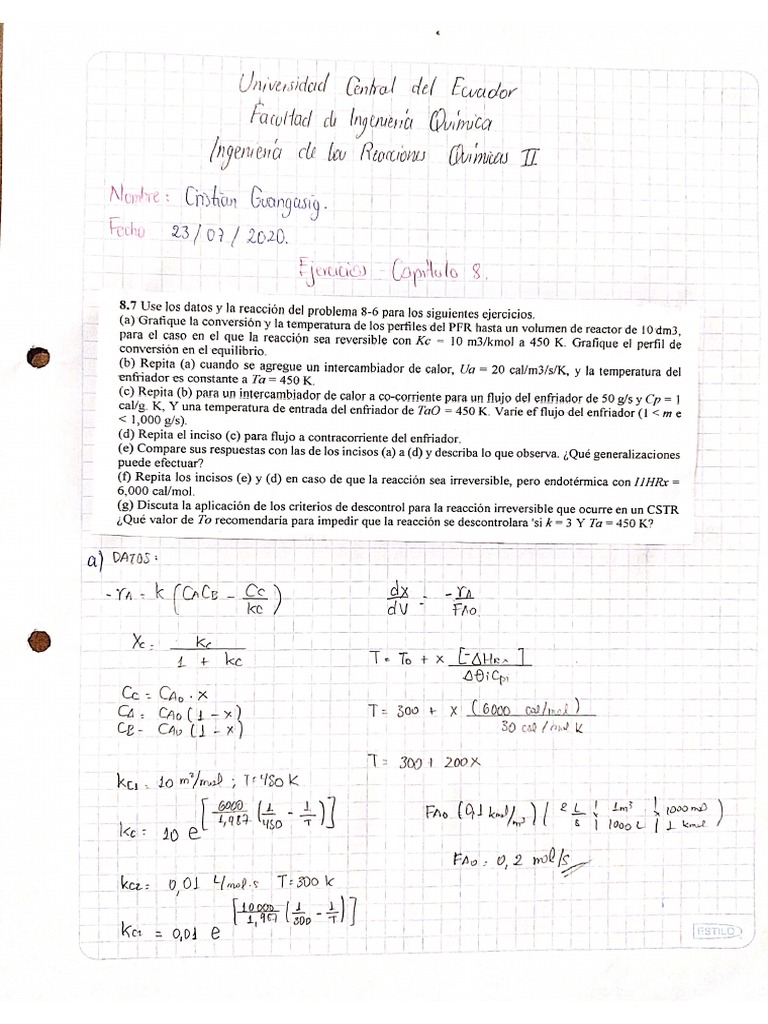 Universidad Central del Ecuador
Facultad de Ingeniería Química
Ingeniería de las Reacciones Químicas II
Nombre: Cristian Guangasig.
Fecha 23/07/2020.
Ejercicios - Capítulo 8.
8.7 Use los datos y la reacción del problema 8-6 para los siguientes ejercicios.
(a) Grafique la conversión y la temperatura de los perfiles del PFR hasta un volumen de reactor de 10 dm3,
para el caso en el que la reacción sea reversible con Kc = 10 m3/kmol a 450 K. Grafique el perfil de
conversión en el equilibrio.
(b) Repita (a) cuando se agregue un intercambiador de calor, Ua = 20 cal/m3/s/K, y la temperatura del
enfriador es constante a Ta = 450 K.
(c) Repita (b) para un intercambiador de calor a co-corriente para un flujo del enfriador de 50 g/s y Cp = 1
cal/g. K, Y una temperatura de entrada del enfriador de TaO = 450 K. Varíe ef flujo del enfriador (1 < m e
< 1,000 g/s).
(d) Repita el inciso (c) para flujo a contracorriente del enfriador.
(e) Compare sus respuestas con las de los incisos (a) a (d) y describa lo que observa. ¿Qué generalizaciones
puede efectuar?
(f) Repita los incisos (e) y (d) en caso de que la reacción sea irreversible, pero endotérmica con I1HRx =
6,000 cal/mol.
(g) Discuta la aplicación de los criterios de descontrol para la reacción irreversible que ocurre en un CSTR
¿Qué valor de To recomendaría para impedir que la reacción se descontrolara 'si k = 3 Y Ta = 450 K?
a) DATOS:
-rA = k (CACB - Cc/kc)
dx/dV = -rA/FAO
Xc = kc/(1 + kc)
T = To + x [-ΔHRx]/ΔθiCpi
Cc = CAo . x
CA = CAo (1 - x)
CB = CAo (1 - x)
T = 300 + x (6000 cal/mol)/(30 cal/mol K)
T = 300 + 200x
kc1 = 10 m³/mol ; T = 450 K
kc = 10 e^[6000/1,987 (1/450 - 1/T)]
FAo (0,1 kmol/m³) (2 L/s | 1m³/1000 L | 1000 mol/1 kmol)
FAo = 0,2 mol/s
kc2 = 0,01 L/mol.s T = 300 K
kc2 = 0,01 e^[10000/1,987 (1/300 - 1/T)]
ESTILO